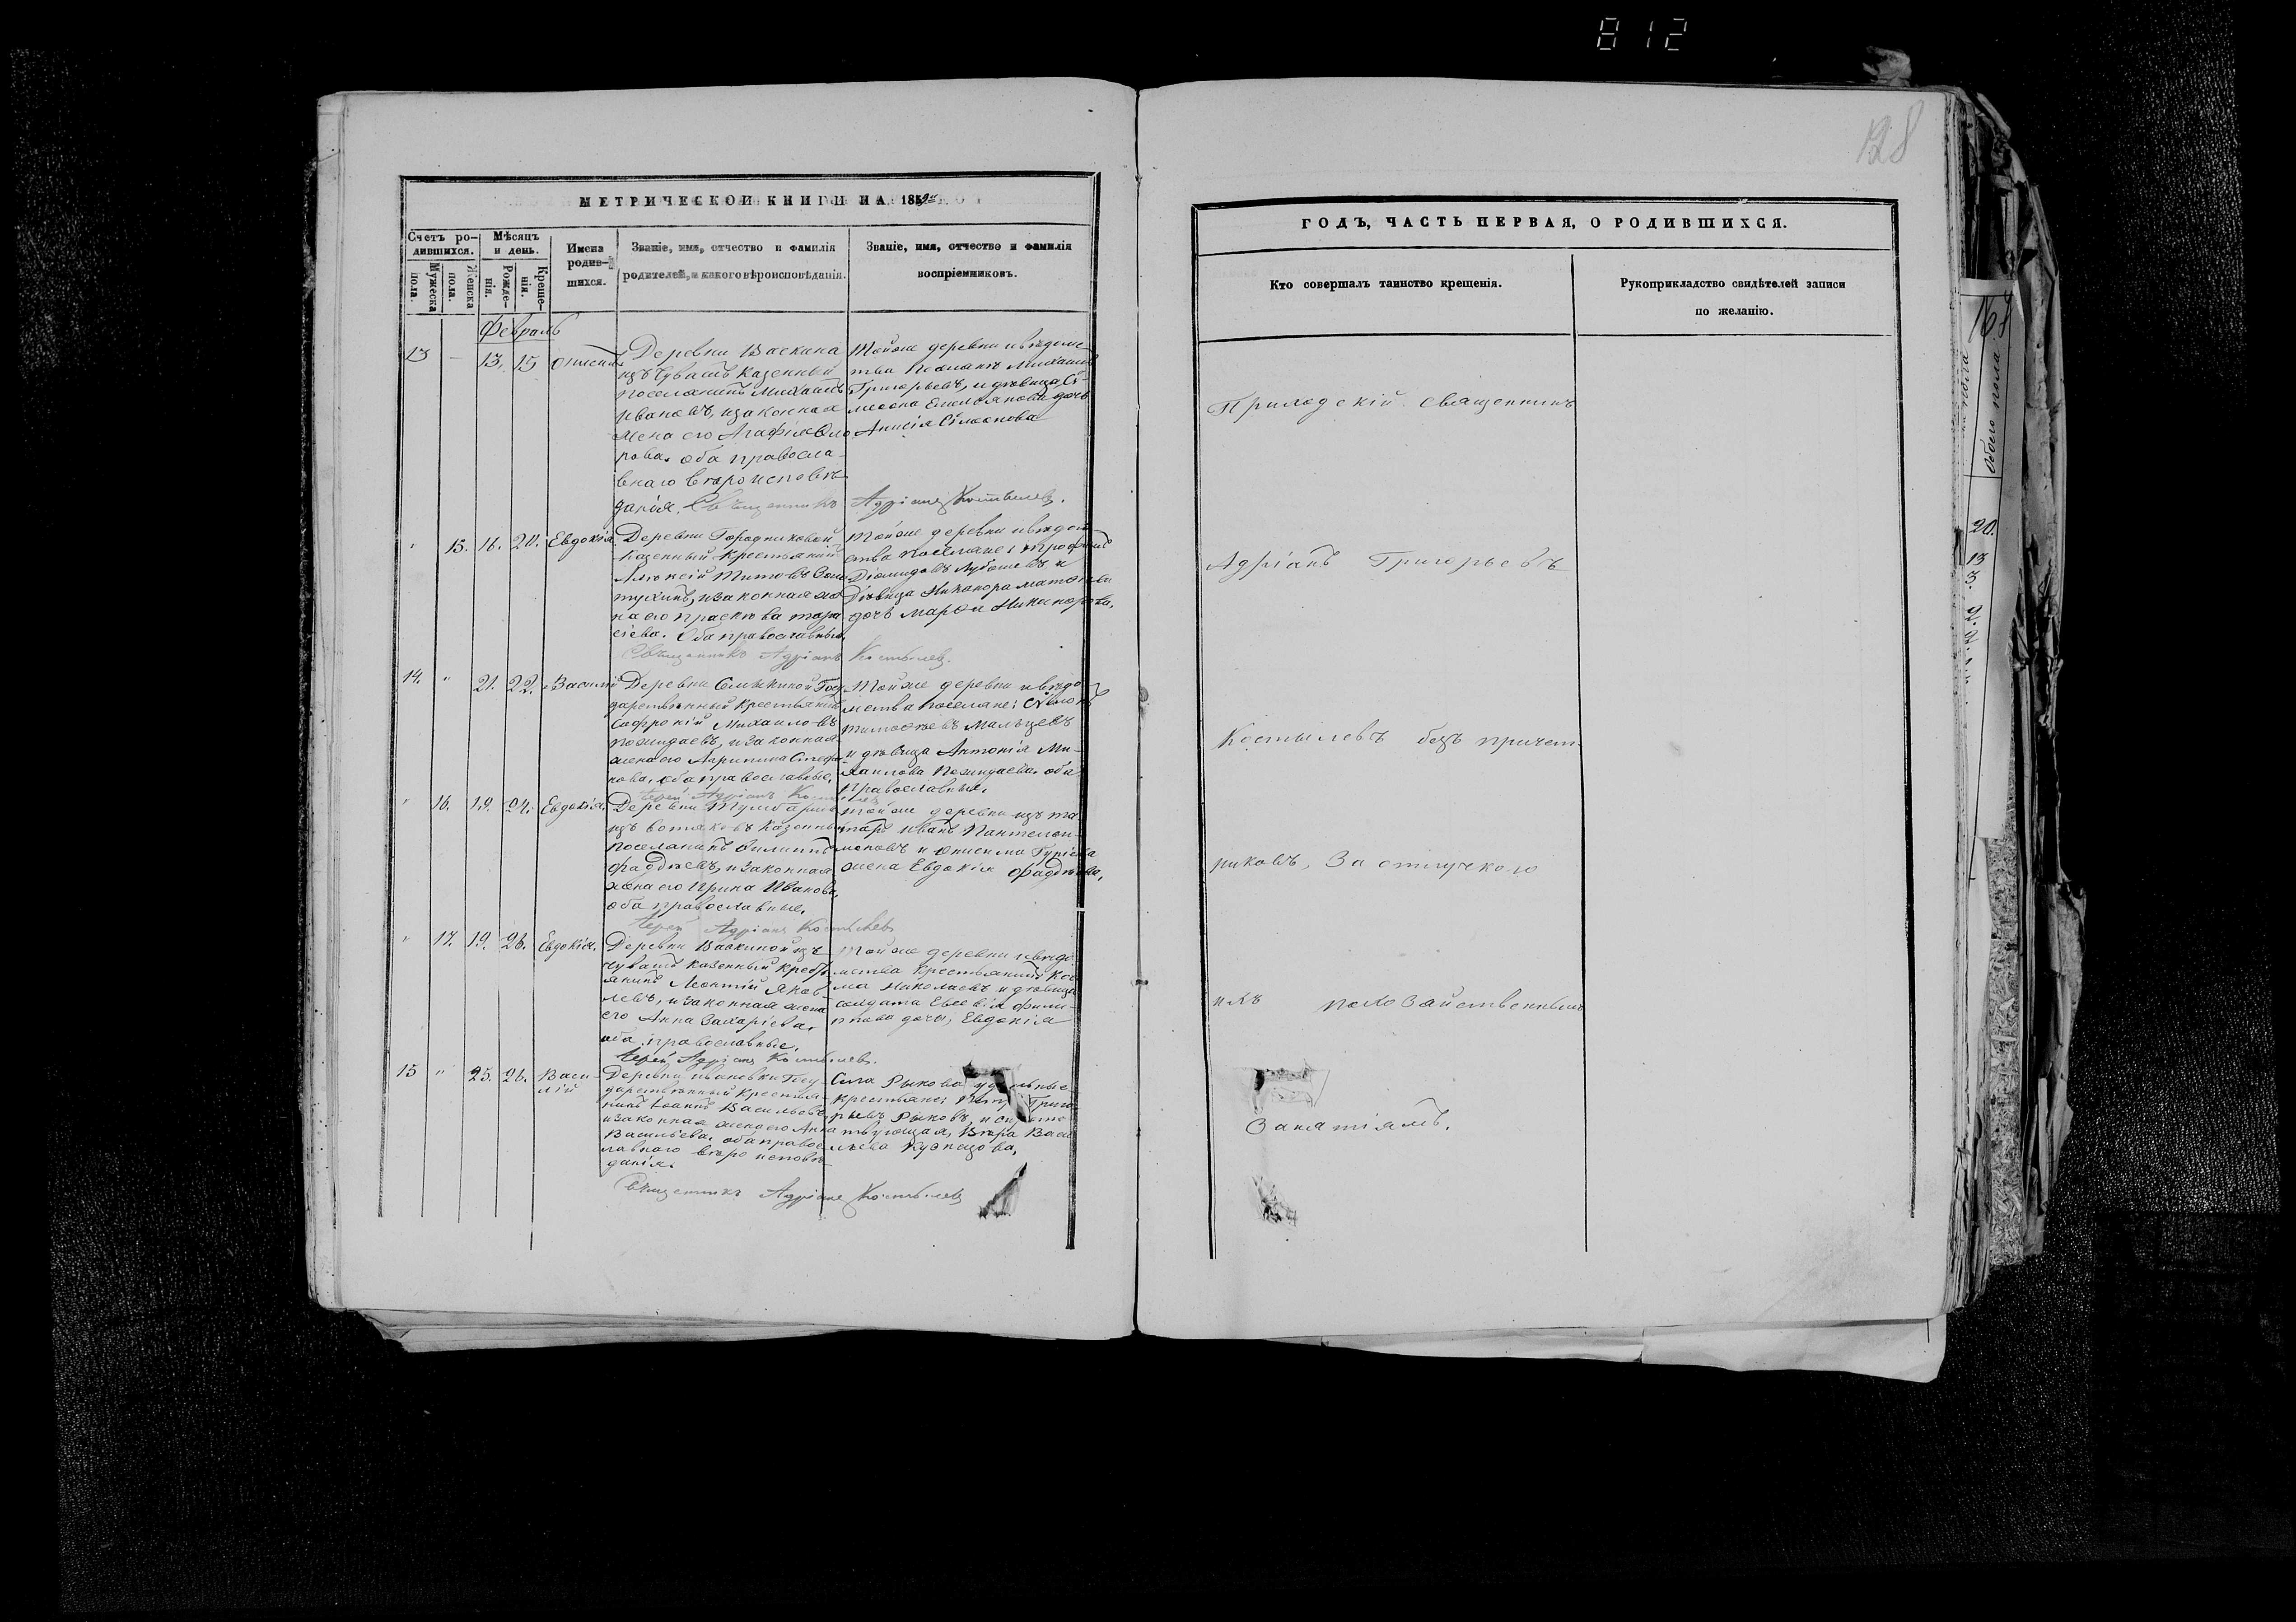 812
128
МЕТРИЧЕСКОЙ КНИГИ НА 1859й
Счетъ ро-
дившихся.
Мужеска
пола.
Женска
пола.
Мѣсяцъ
и день.
Рожде-
нія.
Креще-
нія.
Имена
родив-
шихся.
Званіе, имя, отчество и фамилія
родителей, и какого вѣроисповѣданія.
Званіе, имя, отчество и фамилія
воспріемниковъ.
Февраль
13 – 13. 15
Деревни Васкина
изъ Чувашъ Казенный
поселянинъ Михаилъ
Ивановъ, и законная
жена его Агафія
рова. оба правосла-
внаго вѣроисповѣ-
данія. Священникъ Адріанъ Костылевъ.
Тойже деревни и вѣдомс
тва Михаилъ
Григорьевъ, и дѣвица
Емельянова дочь
Анисія
" 15. 16. 20. Евдокія
Деревни Городниковой
Казенный крестьянинъ
Алексій Титовъ
и законная же
на его Прасковья Тара
сіева. Оба православные.
Священникъ Адріанъ Костылевъ.
Тойже деревни и вѣдом
ства поселяне: Трофимъ
и
Дѣвица Никанора Матвѣева
дочь Марфа Никанорова.
14. " 21. 22. Василій
Деревни Госу
дарственный крестьянинъ
Софроній Михаиловъ
и законная
жена его Агрипина Стефа
нова, оба православные.
Іерей Адріанъ Костылевъ
Тойже деревни и вѣдо
мства поселяне: Сѵмеонъ
Тимофѣевъ Мальцевъ
и дѣвица Антонія Ми-
хаилова оба
православные.
" 16. 19. 24. Евдокія.
Деревни
изъ вотяковъ Казенный
поселянинъ Филиппъ
Фаддѣевъ, и законная
жена его Ирина Иванова,
оба православные.
Іерей Адріанъ Костылевъ
тойже деревни изъ та
таръ Иванъ Пантелеи-
моновъ и
жена Евдокія Фаддѣева.
" 17. 19. 26. Евдокія.
Деревни Васкиной изъ
Чувашъ казенный крест
янинъ Леонтій Яков
левъ, и законная жена
его Анна Захаріева.
оба православные.
Іерей Адріанъ Костылевъ.
Тойже деревни и вѣдо
мства крестьянинъ Кос
ма Николаевъ и дѣвица
солдата Евсевія Фили-
пова дочь, Евдокія
15 " 25. 26. Васи-
лій
Деревни Ивановки Госу-
дарственный крестья-
нинъ Іоаннъ Васильевъ
и законная жена его Анна
Васильева. оба правос-
лавнаго вѣроисповѣ-
данія.
Священникъ Адріанъ Костылевъ
Села Рыкова удѣльные
крестьяне: Григо
рьевъ Рыковъ, и
Вѣра Васи
льева Кузнецова.
ГОДЪ, ЧАСТЬ ПЕРВАЯ, О РОДИВШИХСЯ.
Кто совершалъ таинство крещенія.
Рукоприкладство свидѣтелей записи
по желанію.
Приходскій священникъ
Адріанъ Григорьевъ
Костылевъ безъ причет-
никовъ, за отлучкою
ихъ по хозайственнымъ
занятіямъ.
168
обоего пола
20.
13
3.